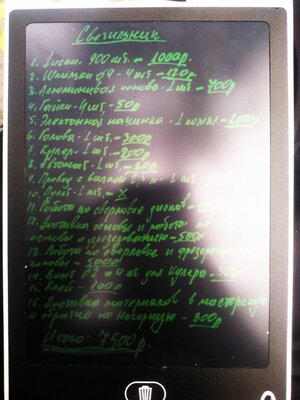 Светильник
1. Диски - 900 шт. - 1000р.
2. Шпильки d4 - 4 шт. - 120р
3. Алюминиевая основа - 1 шт - 400р
4. Гайки - 4 шт - 50р
5. Электронная начинка - 1 компл -
6. Голова - 1 шт. - 300р
7. Кулер - 1 шт. - 200р
8. - 1 шт. - 80р
9. Провод с вилкой - 1 шт -
10. - 1 шт. - X
11. Работа по сверловке дисков -
12. Доставка основы и работа по
основы и фрезерованию - 500р
13. Работа по сверловке и фрезеровке
головы - 500р
14. Винт d2 - 4 шт для кулера - 50р
15. Клей - 100р
16. Доставка материалов в мастерскую
и обратно на Нагорную - 300р
Итого: 7900р.